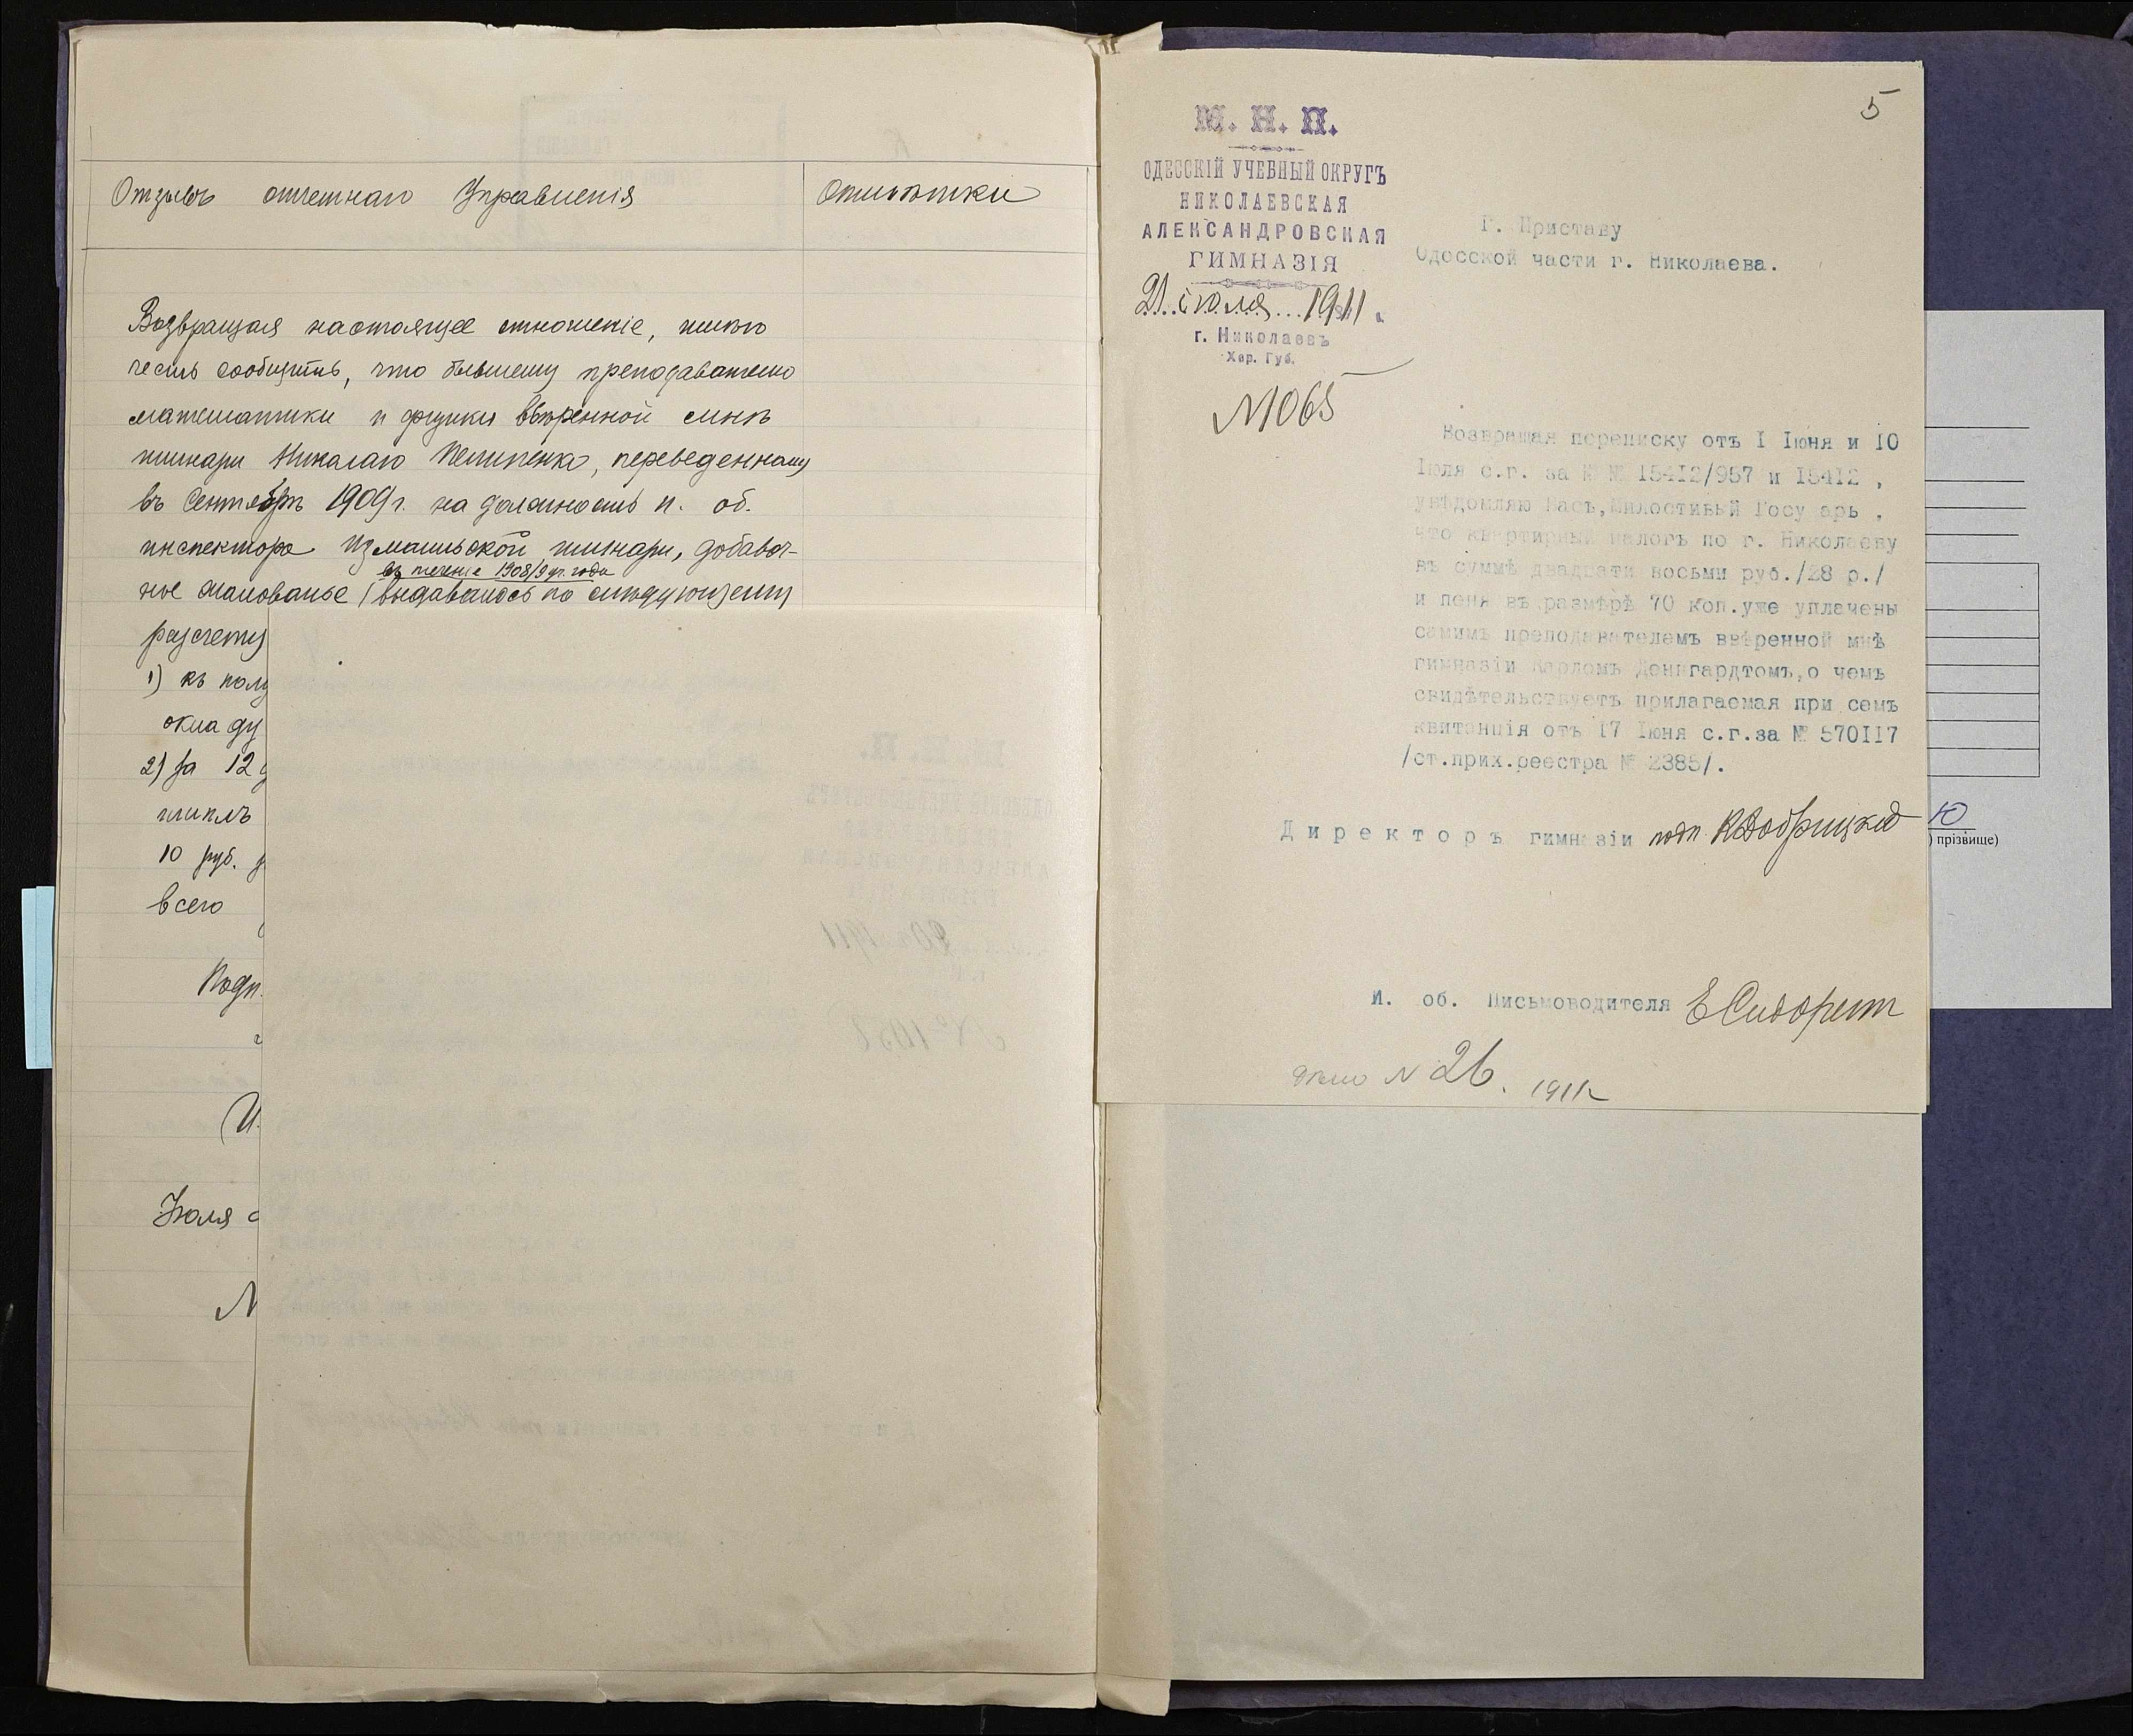 Отзывъ отчетнаго Управленія
Отмѣтки
Возвращая настоящее отношеніе, имѣю
честь сообщить, что бывшему преподавателю
математики и физики ввѣренной мнѣ
гимназіи Николаю Пелипенко, переведенному
въ Сентябрѣ 1909 г. на должность и. об.
инспектора Измаильской гимназіи, добавоч-
въ теченіе 1908/9 уч. года
ное жалованье выдавалось по слѣдующему
разсчету
1) къ полу
окладу
2) за 12
10 руб.
всего
Подп.
И.
Іюля
N
5
М. Н. П.
ОДЕССКІЙ УЧЕБНЫЙ ОКРУГЪ
НИКОЛАЕВСКАЯ
АЛЕКСАНДРОВСКАЯ
ГИМНАЗІЯ
21 іюля 1911 г.
г. Николаевъ
Хер. Губ.
№ 1065
Г. Приставу
Одесской части г. Николаева.
Возвращая переписку отъ I Іюня и I0
Іюля с.г. за № № I54I2/957 и I54I2 ,
увѣдомляю Васъ, Милостивый Госу арь ,
что квартирный налогъ по г. Николаеву
въ суммѣ двадцати восьми руб./28 р./
и пеня въ размѣрѣ 70 коп.уже уплачены
самимъ преподавателемъ ввѣренной мнѣ
гимназіи Карломъ Деннгардтомъ,о чемъ
свидѣтельствуетъ прилагаемая при семъ
квитанція отъ I7 Іюня с.г.за № 570II7
/ст.прих.реестра № 2385/.
Директоръ гимназіи подп. К Добрицкій
И. об. Письмоводителя
дѣло N 26. 1911 г.
Ю
) прізвище)